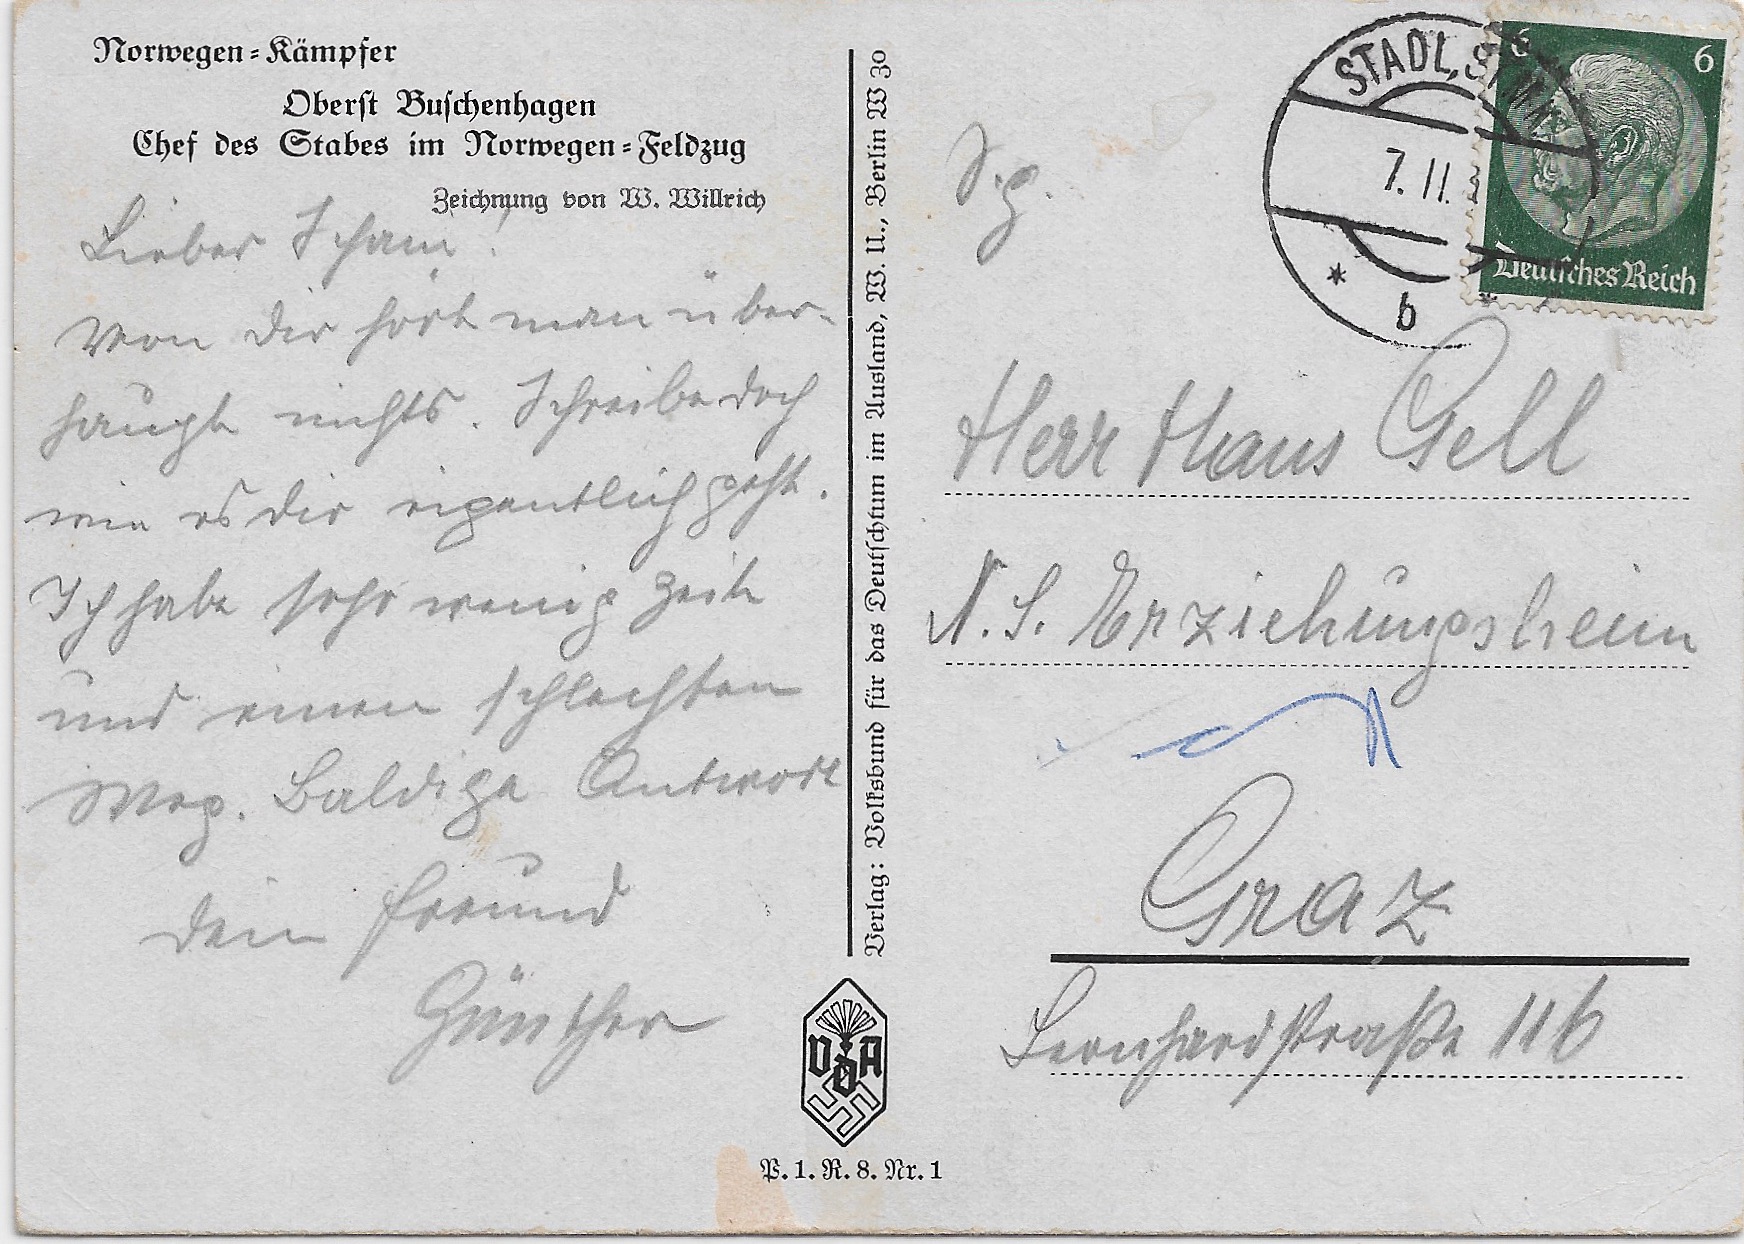 Norwegen-Kämpfer
Oberst Buschenhagen
Chef des Stabes im Norwegen-Feldzug
Zeichnung von W. Willrich
Lieber
Von dir hört man über-
haupt nichts. Schreibe doch
wie es dir eigentlich geht.
Ich habe sehr wenig Zeit
und einen schlechten
Antwort
dein Freund
Günther
Verlag: Volksbund für das Deutschtum im Ausland, W. U., Berlin W 30
VDA
P. 1. R. 8. Nr. 1
STADL,
7. 11.
b
6 6
Deutsches Reich
S. g.
Herr Hans Gell
N. S. Erziehungsheim
Graz
Leonhardstraße 116